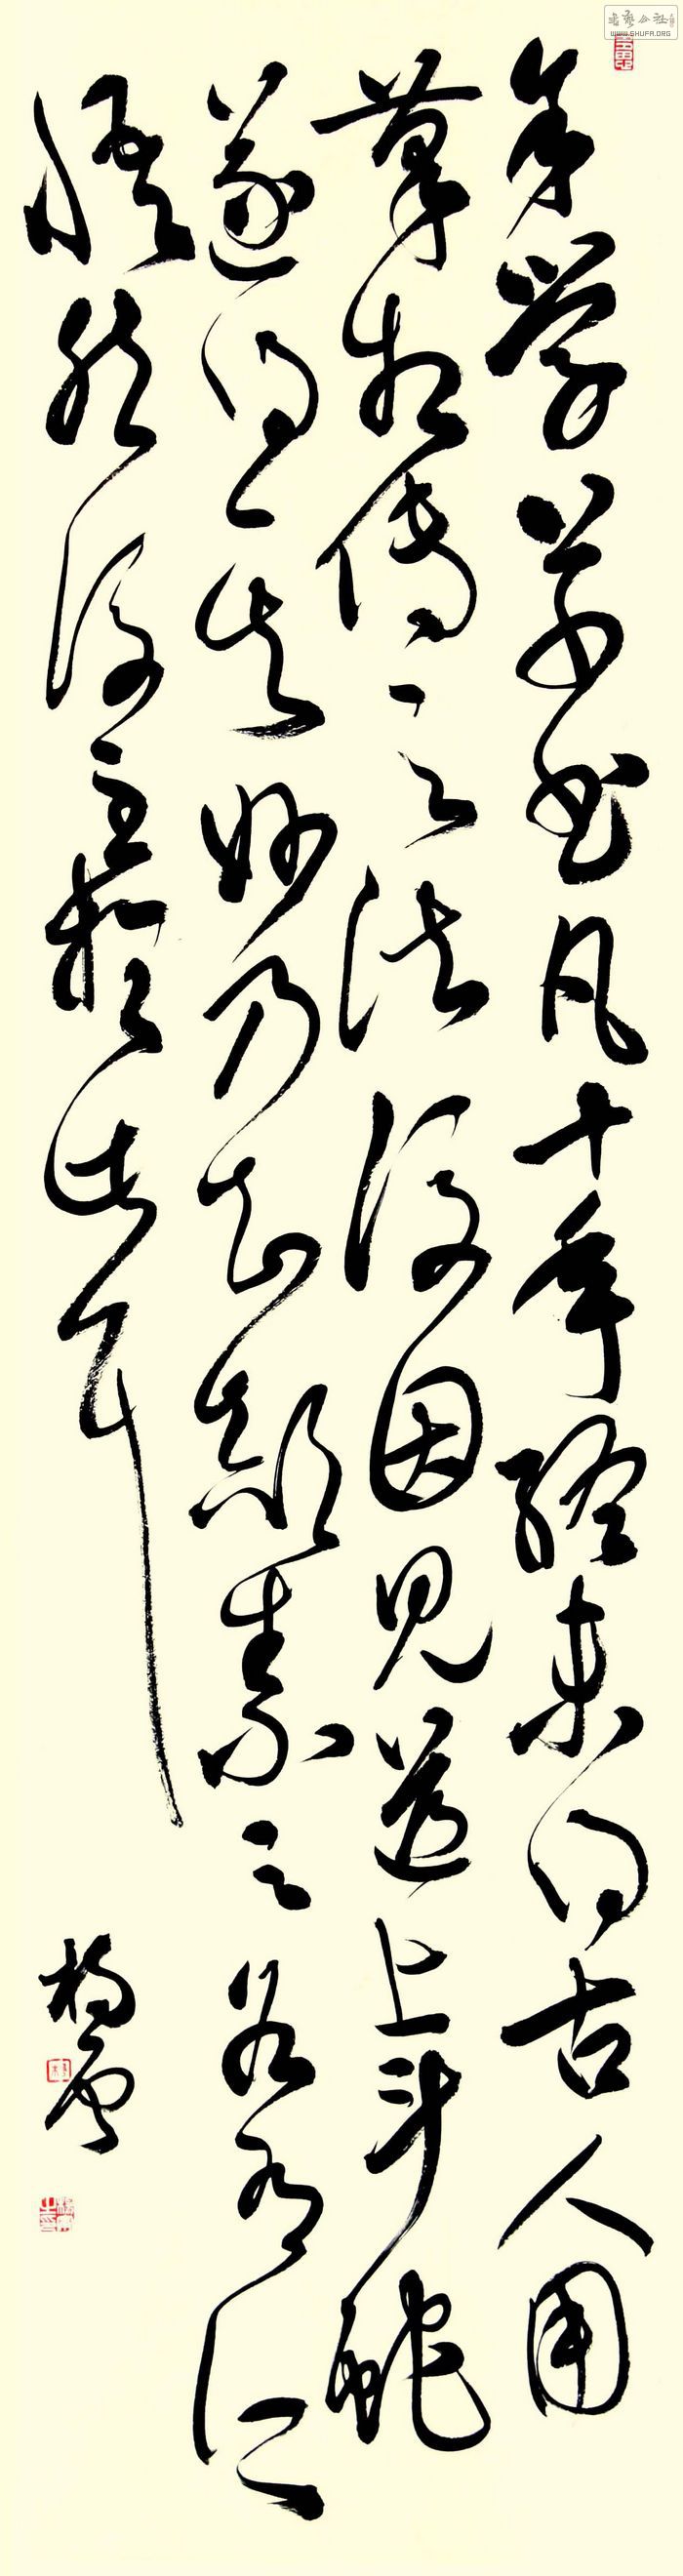 余学草书凡十年终未得古人用
笔相传之法后因见道上斗蛇
遂得其妙乃知颠素之各有所
悟然后至於此耳
WWW.SHUFA.ORG